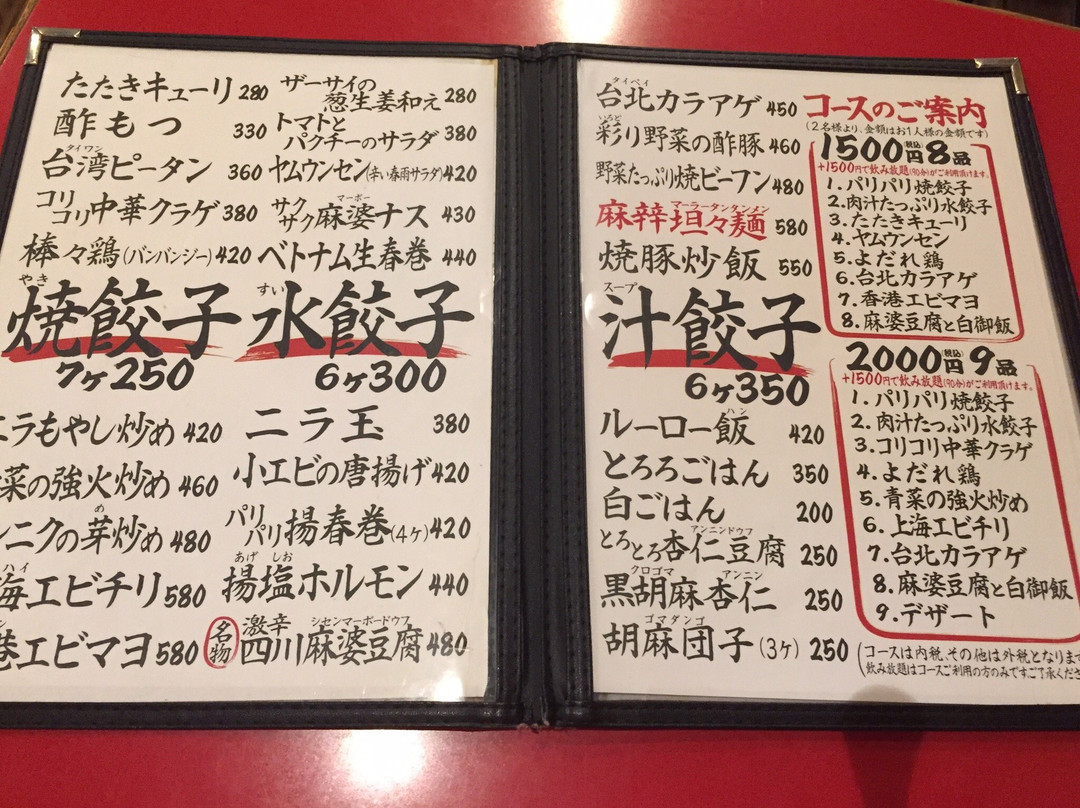 たたきキューリ 280
酢もつ 330
タイワン
台湾ピータン 360
コリコリ中華クラゲ 380
棒々鶏(バンバンジー) 420
ザーサイの葱生姜和え 280
トマトとパクチーのサラダ 380
ヤムウンセン(辛い春雨サラダ) 420
マーボー
サクサク麻婆ナス 430
ベトナム生春巻 440
やき
焼餃子
7ヶ250
すい
水餃子
6ヶ300
ニラもやし炒め 420
菜の強火炒め 460
め
ニクの芽炒め 480
ハイ
海エビチリ 580
港エビマヨ 580
ニラ玉 380
小エビの唐揚げ 420
パリパリ揚春巻(4ヶ) 420
あげ しお
揚塩ホルモン 440
名物
激辛 シセンマーボードウフ
四川麻婆豆腐 480
タイペイ
台北カラアゲ 450
いろど
彩り野菜の酢豚 460
野菜たっぷり焼ビーフン 480
マーラータンタンメン
麻辛坦々麺 580
焼豚炒飯 550
スープ
汁餃子
6ヶ350
ハン
ルーロー飯 420
とろろごはん 350
白ごはん 200
アンニンドウフ
とろとろ杏仁豆腐 250
クロゴマ アンニン
黒胡麻杏仁 250
ゴマダンゴ
胡麻団子(3ヶ) 250
コースのご案内
(2名様より、金額はお1人様の金額です)
1500円(税込)8品
+1500円で飲み放題(90分)がご利用頂けます。
1.パリパリ焼餃子
2.肉汁たっぷり水餃子
3.たたきキューリ
4.ヤムウンセン
5.よだれ鶏
6.台北カラアゲ
7.香港エビマヨ
8.麻婆豆腐と白御飯
2000円(税込)9品
+1500円で飲み放題(90分)がご利用頂けます。
1.パリパリ焼餃子
2.肉汁たっぷり水餃子
3.コリコリ中華クラゲ
4.よだれ鶏
5.青菜の強火炒め
6.上海エビチリ
7.台北カラアゲ
8.麻婆豆腐と白御飯
9.デザート
(コースは内税、その他は外税となります
飲み放題はコースご利用の方のみですご了承くださ